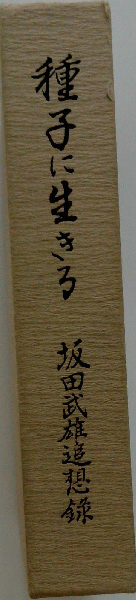 種子に生きる
坂田武雄追想録